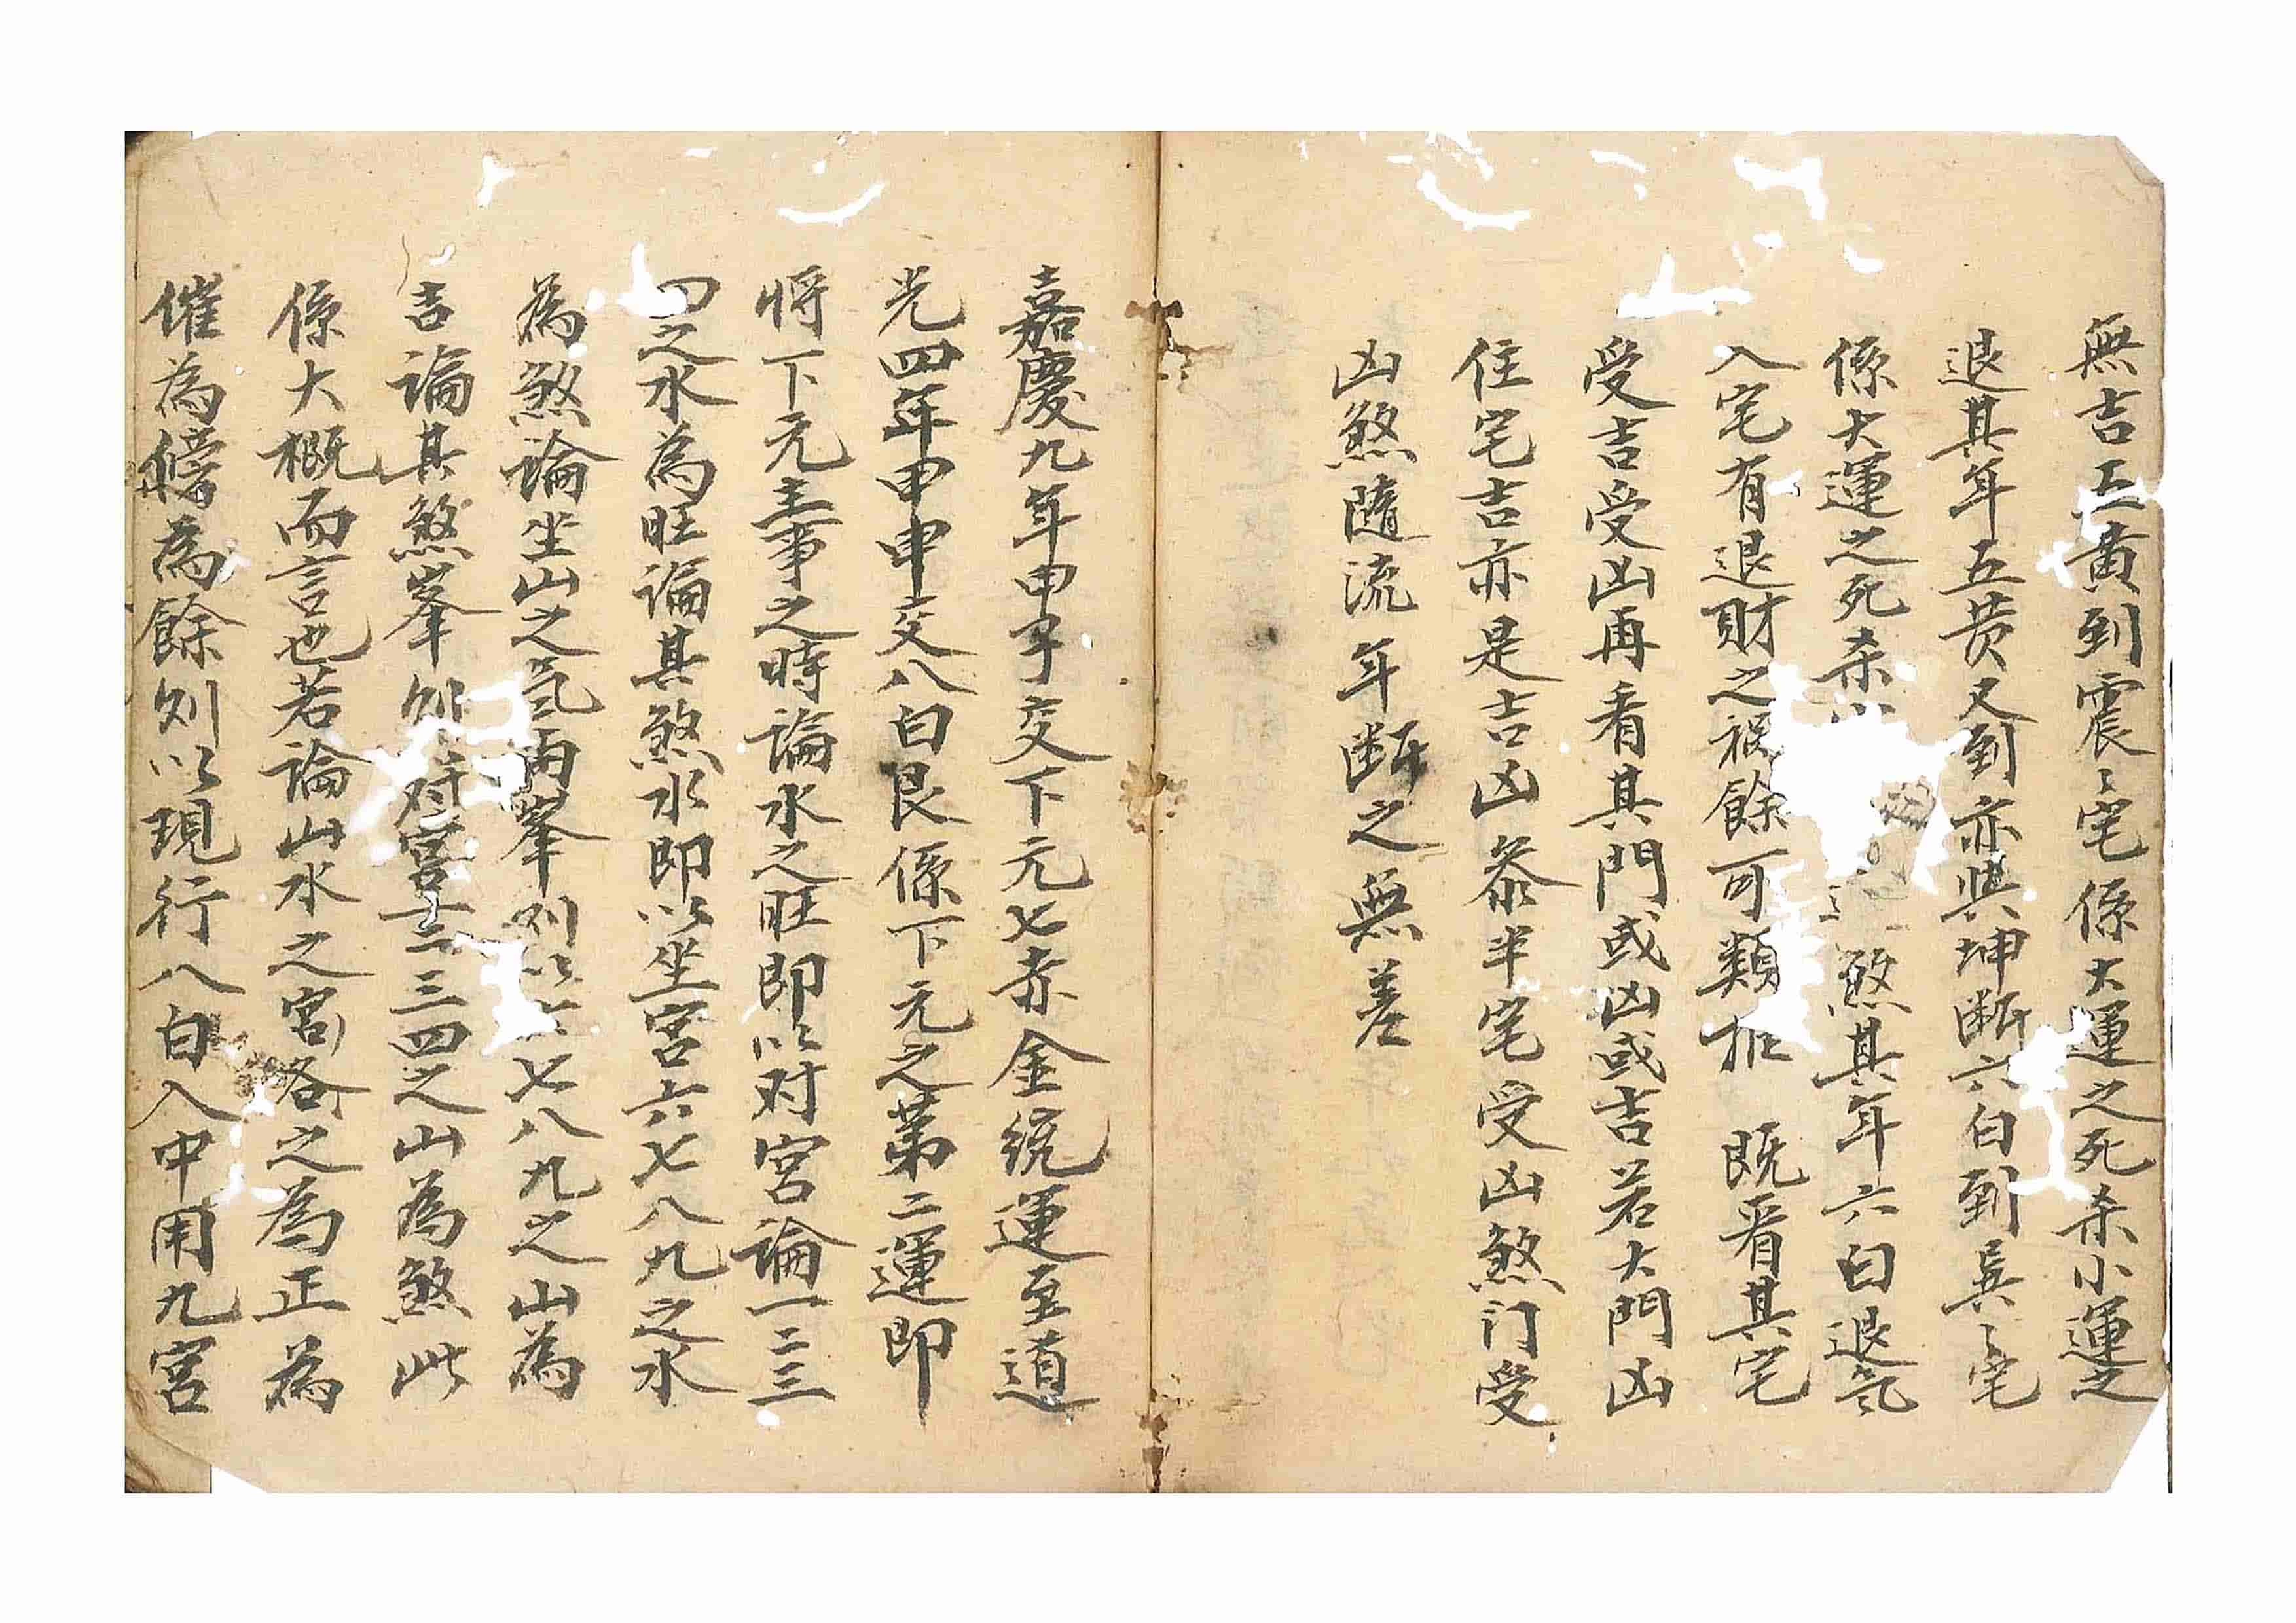 無吉五黃到震〻宅係大運之死杀小運之
退其年五黄又到亦與坤断六白到巽〻宅
係大運之死杀小煞其年六白退氣
入宅有退財之禍餘可類推 既看其宅
受吉受凶再看其門或凶或吉若大門凶
住宅吉亦是吉凶叅半宅受凶煞门受
凶煞隨流年断之無差
嘉慶九年甲子交下元七赤金統運至道
光四年甲申交八白艮係下元之第二運即
将下元主事之時論水之旺即以对宮論一二三
四之水為旺論其煞水即以坐宮六七八九之水
為煞論坐山之氣两峯则以六七八九之山為
吉論其煞峯则以对宮一二三四之山為煞此
係大概而言也若論山水之宮各之為正為
催為傍為餘则以現行八白入中用九宮